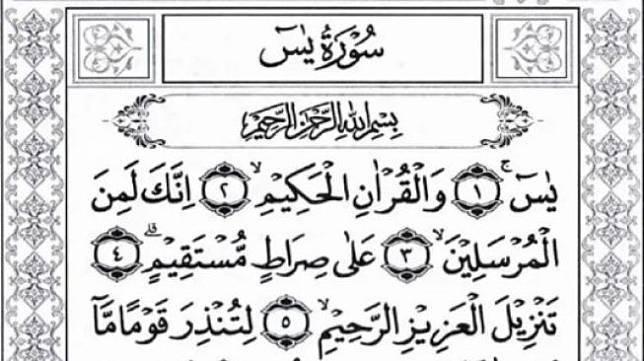 سُوْرَةُ يٰسۤ
بِسْمِ اللهِ الرَّحْمٰنِ الرَّحِيْمِ
يٰسۤ ۚ ﴿١﴾ وَالْقُرْاٰنِ الْحَكِيْمِ ۙ ﴿٢﴾ اِنَّكَ لَمِنَ
الْمُرْسَلِيْنَ ۙ ﴿٣﴾ عَلٰى صِرَاطٍ مُّسْتَقِيْمٍ ۗ ﴿٤﴾
تَنْزِيْلَ الْعَزِيْزِ الرَّحِيْمِ ۙ ﴿٥﴾ لِتُنْذِرَ قَوْمًا مَّآ